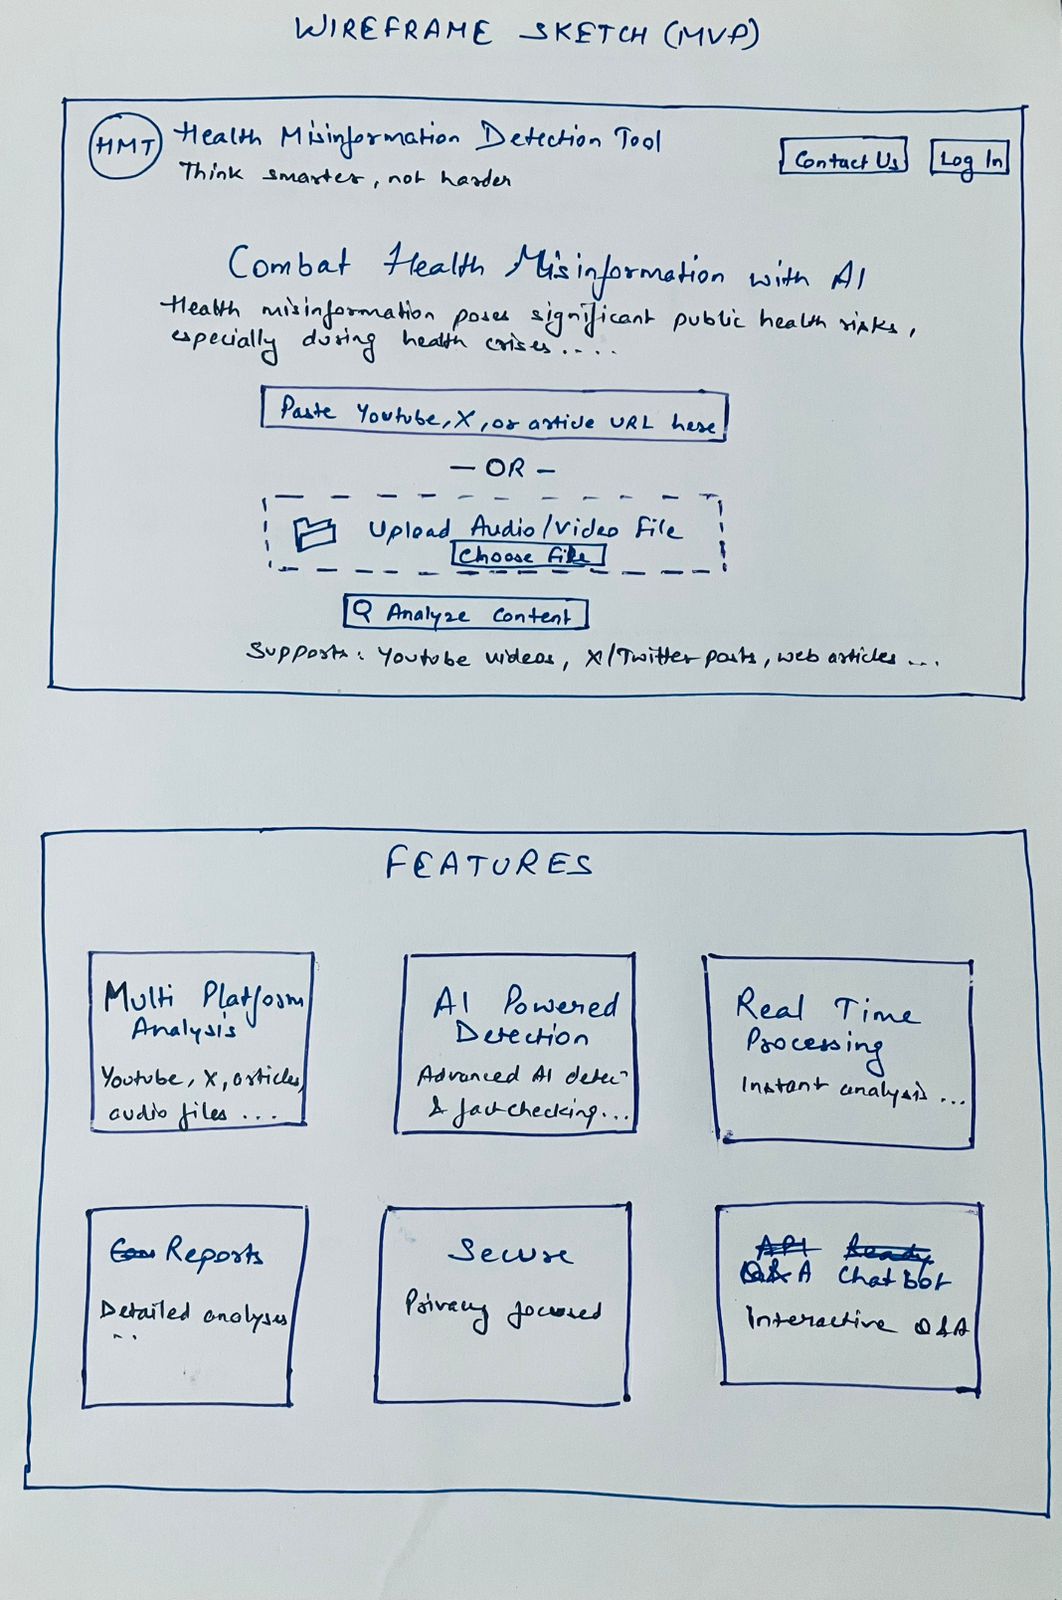 WIREFRAME SKETCH (MVP)
HMT
Health Misinformation Detection Tool
Think smarter, not harder
Contact Us
Log In
Combat Health Misinformation with AI
Health misinformation poses significant public health risks,
especially during health crises.....
Paste Youtube, X, or article URL here
— OR —
Upload Audio/Video File
Choose File
Analyze Content
Supports: Youtube videos, X/Twitter posts, web articles ...
FEATURES
Multi Platform
Analysis
Youtube, X, articles,
audio files ...
AI Powered
Detection
Advanced AI detec
& fact checking...
Real Time
Processing
Instant analysis ...
Reports
Detailed analyses
..
Secure
Privacy focused
API Ready
Q&A Chat bot
Interactive Q&A